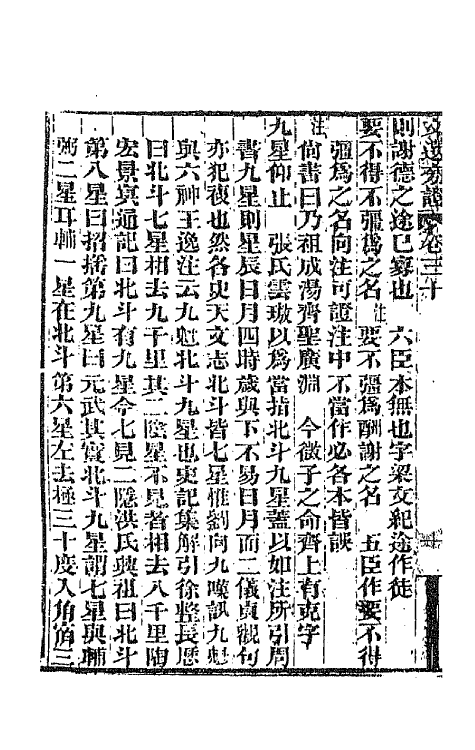 文選旁證 卷三十
則謝德之途已寡也　六臣本無也字梁文紀途作徒
要不得不彊爲之名註要不彊爲酬謝之名　五臣作要不得
彊爲之名向注可證注中不當作必各本皆誤
註尙書曰乃祖成湯齊聖廣淵　今微子之命齊上有克字
九星仰止　張氏雲璈以爲當指北斗九星蓋以如注所引周
書九星則星辰日月四時歲與下不易日月而二儀貞觀句
亦犯複也然各史天文志北斗皆七星惟劉向九嘆訊九鬿
與六神王逸注云九鬿北斗九星也史記集解引徐整長歷
曰北斗七星相去九千里其二陰星不見者相去八千里陶
宏景眞通記曰北斗有九星今七見二隱洪氏興祖曰北斗
第八星曰招搖第九星曰元武其實北斗九星謂七星與輔
弼二星耳輔一星在北斗第六星左去極三十度入角宿三